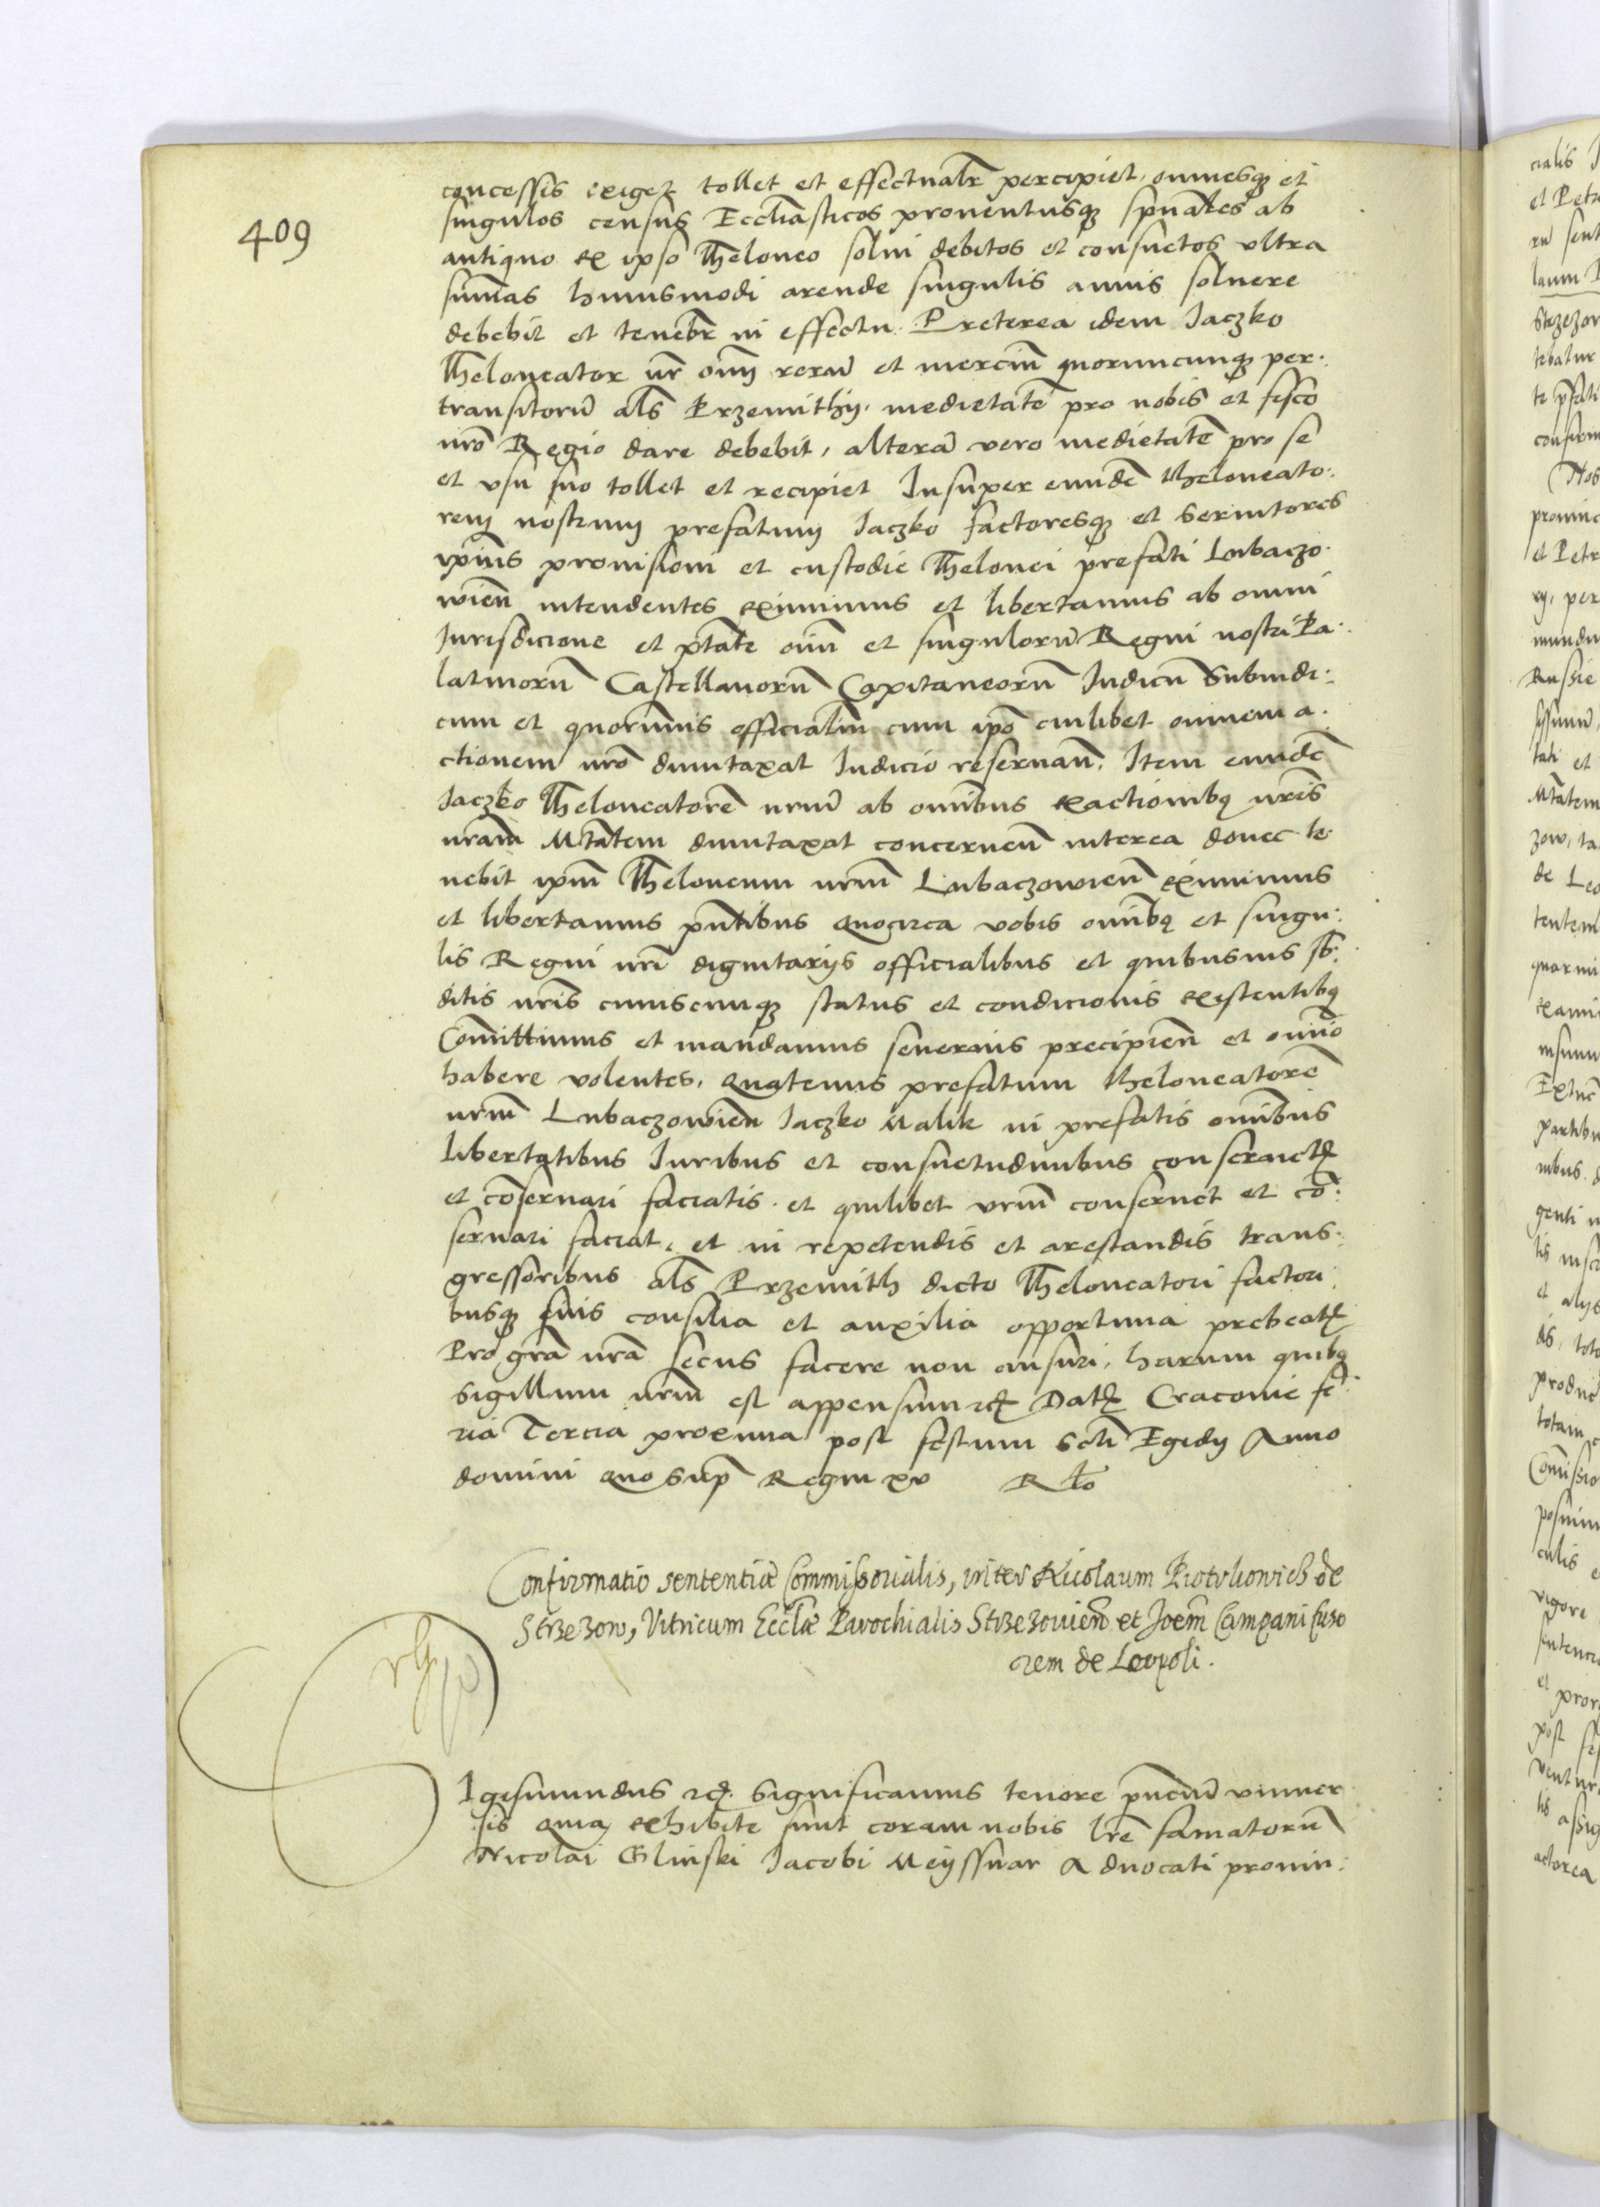 409
concessis exiget tollet et effectualr̄ percipiet, omnesq3 et
singulos census Eccl̄iasticos prouentusq3 spūales ab
antiquo ex ipso Theloneo solui debitos et consuetos vltra
sum̄as huiusmodi arende singulis annis soluere
debebit et tenebr̄ in effectu. Preterea idem Iaczko
Theloneator nr̄ oīm rerū et merciū quorumcunq3 per.
transitorū al̄s Przemithij, medietatē pro nobis et fisco
nr̄o Regio dare debebit, alterā vero medietatē pro se
et vsu suo tollet et recipiet Insuper eundē theloneato.
rem nostrum prefatum Iaczko factoresq3 et seruitores
ipsius prouisioni et custodie Thelonei prefati Lubaczo.
wien̄ intendentes eximimus et libertamus ab omni
Iurisdicione et ptāte oīm et singulorū Regni nostri Pa.
latinorū Castellanorū Capitaneorū Iudicū Subiudi:
cum et quorumuis officialiū cum ipō cuilibet omnem a.
ctionem nr̄o dumtaxat Iudicio reseruan̄. Item eundē
Iaczko Theloneatorē nr̄um ab omnibus exactionibq nr̄is
nr̄am Mtātem dumtaxat concernen̄ interea donec te.
nebit ipm̄ Theloneum nr̄m Lubaczowien̄ eximimus
et libertamus pn̄tibus Quocirca vobis omnibq et singu:
lis Regni nr̄i dignitarijs officialibus et quibusuis sb:
ditis nr̄is cuiuscunq3 status et condicionis existentibq
Com̄ittimus et mandamus seuerius precipien̄ et omnīo
habere volentes, Quatenus prefatum theloneatorē
nr̄m Lubaczowien̄ Iaczko Malik in prefatis omnibus
libertatibus Iuribus et consuetudinibus conseruetq
et cōseruari faciatis. et quilibet vr̄m conseruet et cō:
seruari faciat, et in repetendis et arestandis trans.
gressoribus al̄s Przemith dicto Theloneatori factori.
busq3 suis consilia et auxilia opportuna prebeatq
Pro grā nr̄a secus facere non ausuri, harum quibq
sigillum nr̄m est appensum etc Datq Cracouie fe.
ria Tercia proxima post festum scti Egidij Anno
domini quo sup̄ Regni xv R tō
Confirmatio sententiæ Commissorialis, inter Nicolaum Piotrhowich de
Strzezow, Vitricum Eccl̄iæ Parochialis Strzezouien̄ et Joem̄ Campani Fuso
rem de Leopoli.
Igismundus etc. Significamus tenore pn̄cium vniuer
sis Quia exhibite sunt coram nobis lr̄e famatorū
Nicolai Glinski Iacobi Meyssnar Aduocati prouin: